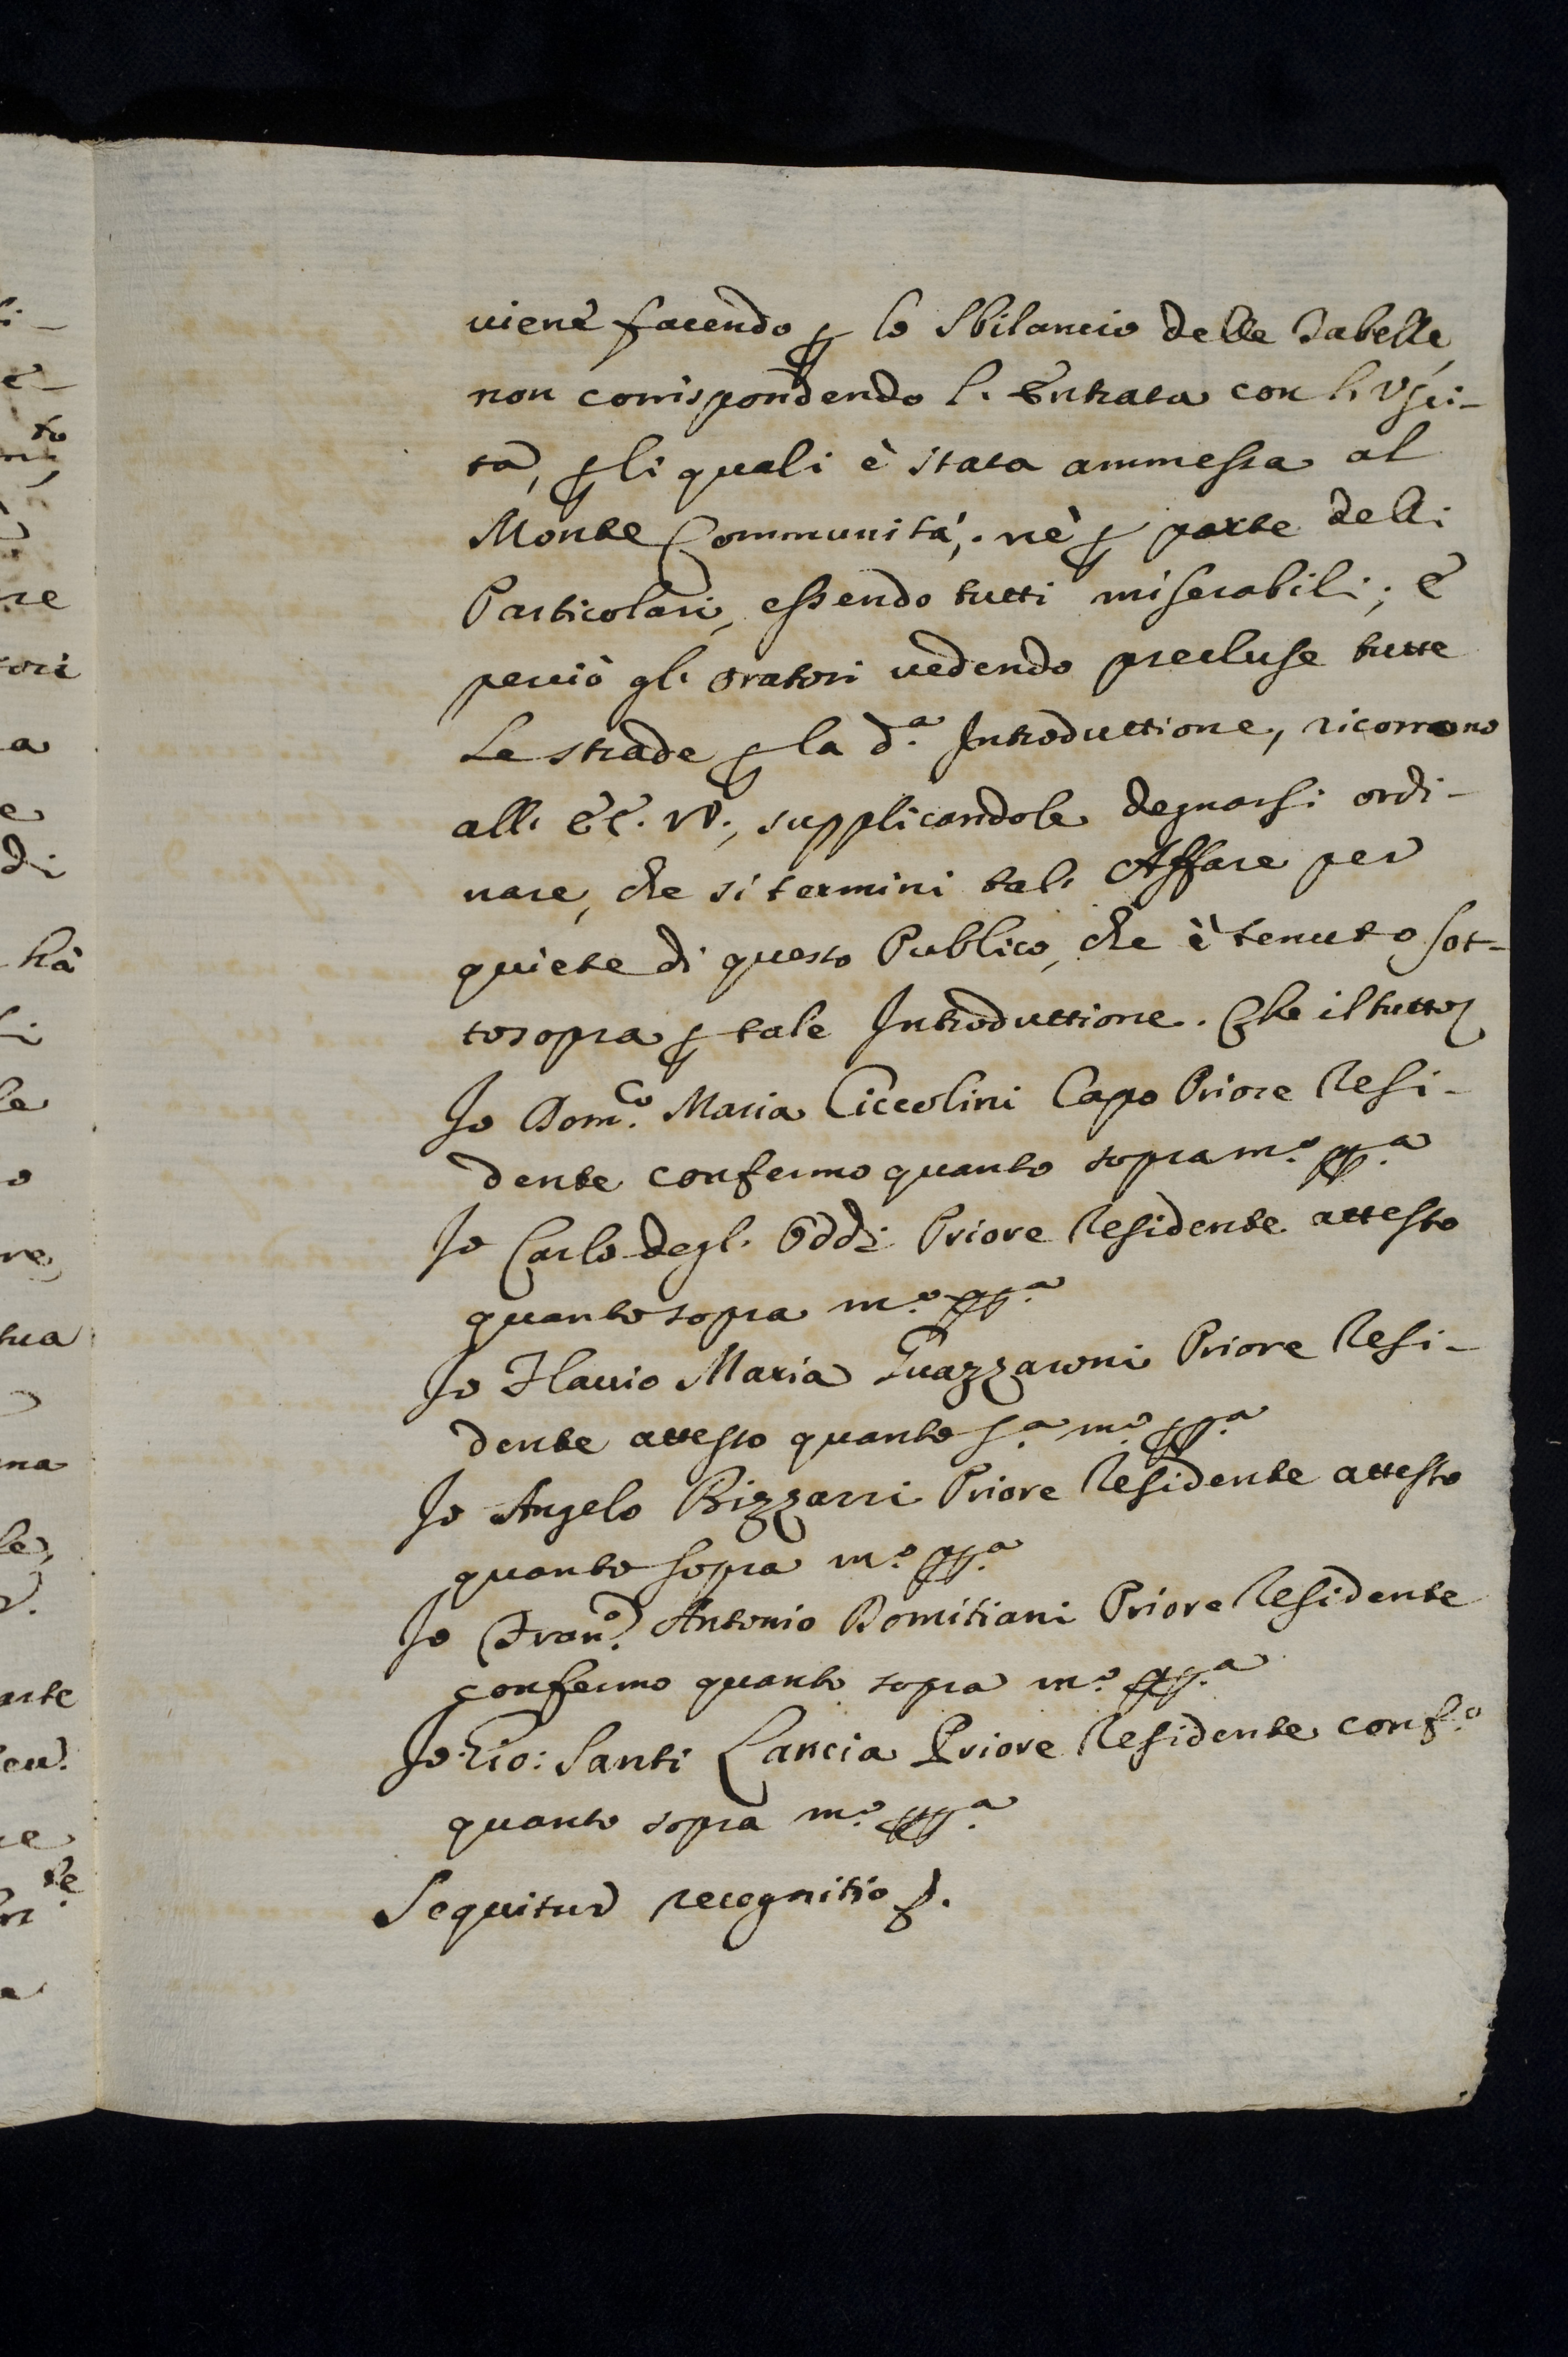 viene facendo p lo Sbilancio delle Tabelle,
non corrispondendo l'Entrata con l'Vsci-
ta, p li quali è stata ammessa al
Monte Communità; nè p parte delli
Particolari, essendo tutti miserabili; e
perciò gl'Oratori uedendo precluse tutte
le strade p la d.ª Introduttione, ricorrono
all'EE. VV., supplicandole degnarsi ordi-
nare, che si termini tal'Affare per
quiete di questo Publico, che è tenuto sot-
tosopra p tale Introduttione. Che il tutto
Io Dom.co Maria Ciccolini Capo Priore Resi-
dente confermo quanto sopra m.º pp.ª
Io Carlo degl'Oddi Priore Residente attesto
quanto sopra m.º pp.ª
Io Flauio Maria Guazzaroni Priore Resi-
dente attesto quanto s.ª m.º pp.ª
Io Angelo Bizzarri Priore Residente attesto
quanto sopra m.º pp.ª
Io Fran.º Antonio Domitiani Priore Residente
confermo quanto sopra m.º pp.ª
Io Gio: Santi Lancia Priore Residente conf.º
quanto sopra m.º pp.ª
Sequitur recognitio